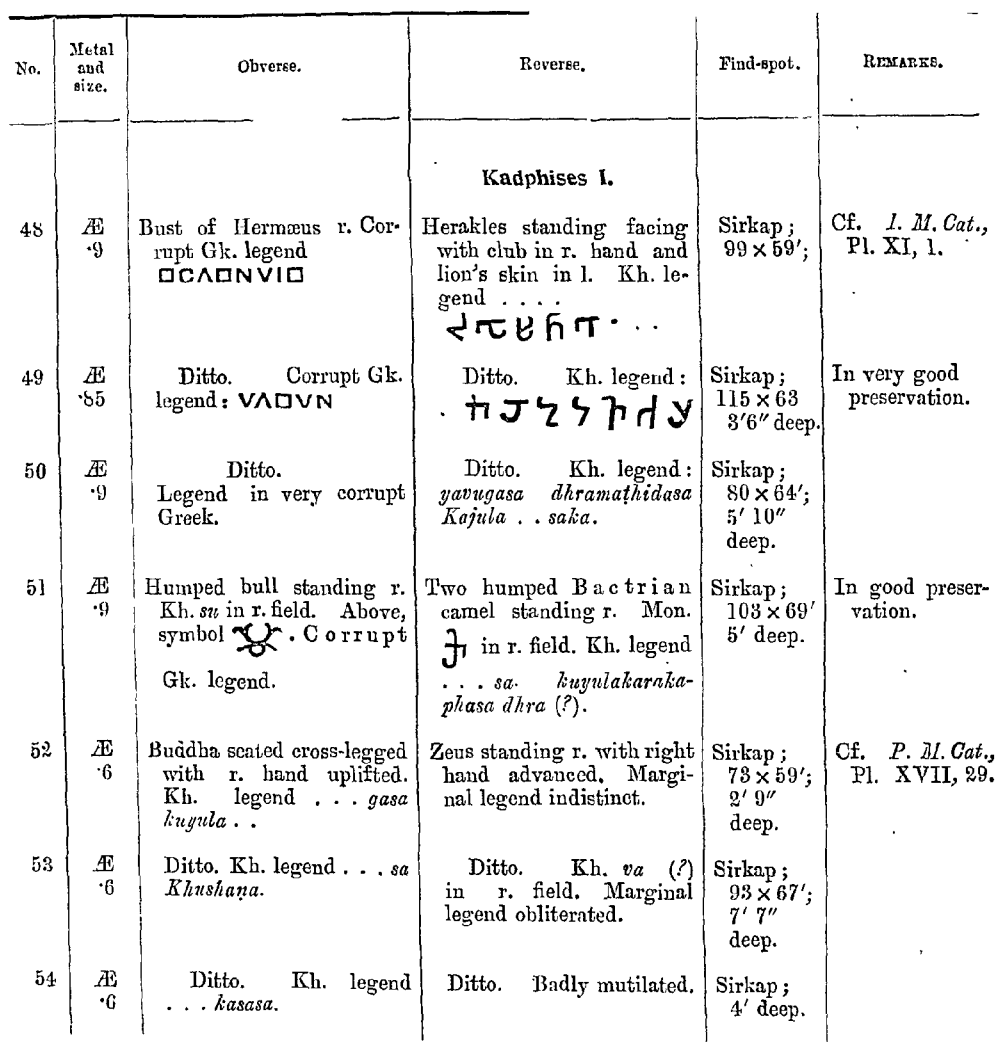 No. Metal and size. Obverse. Reverse. Find-spot. REMARKS.
Kadphises I.
48 Æ ·9
Bust of Hermæus r. Cor-
rupt Gk. legend
Herakles standing facing
with club in r. hand and
lion's skin in l. Kh. le-
gend . . . .
Sirkap;
99 × 59′;
Cf. I. M. Cat.,
Pl. XI, 1.
49 Æ ·85
Ditto. Corrupt Gk.
legend: VΛ◻VN
Ditto. Kh. legend:
Sirkap;
115 × 63
3′6″ deep.
In very good
preservation.
50 Æ ·9
Ditto.
Legend in very corrupt
Greek.
Ditto. Kh. legend:
yavugasa dhramaṭhidasa
Kajula . . saka.
Sirkap;
80 × 64′;
5′ 10″
deep.
51 Æ ·9
Humped bull standing r.
Kh. su in r. field. Above,
symbol . Corrupt
Gk. legend.
Two humped Bactrian
camel standing r. Mon.
in r. field. Kh. legend
. . . sa. kuyulakaraka-
phasa dhra (?).
Sirkap;
103 × 69′
5′ deep.
In good preser-
vation.
52 Æ ·6
Buddha seated cross-legged
with r. hand uplifted.
Kh. legend . . . gasa
kuyula . .
Zeus standing r. with right
hand advanced. Margi-
nal legend indistinct.
Sirkap;
73 × 59′;
2′ 9″
deep.
Cf. P. M. Cat.,
Pl. XVII, 29.
53 Æ ·6
Ditto. Kh. legend . . . sa
Khushaṇa.
Ditto. Kh. va (?)
in r. field. Marginal
legend obliterated.
Sirkap;
93 × 67′;
7′ 7″
deep.
54 Æ ·6
Ditto. Kh. legend
. . . kasasa.
Ditto. Badly mutilated.
Sirkap;
4′ deep.